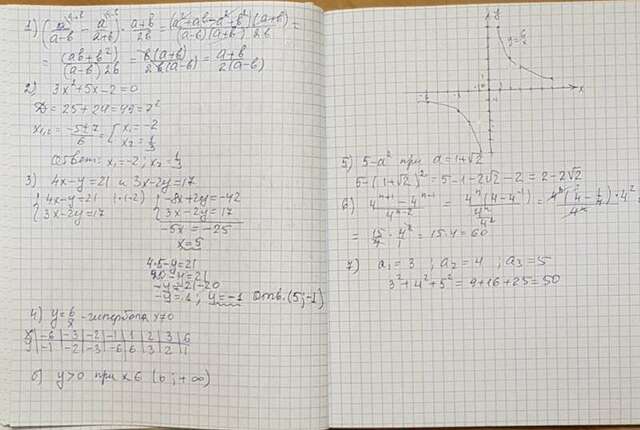 1) (a/(a-b) - a/(a+b)) · (a+b)/2b = (a²+ab-a²+b²)/((a-b)(a+b)) · (a+b)/2b =
= (ab+b²)/((a-b)2b) = b(a+b)/(2b(a-b)) = (a+b)/(2(a-b))
2) 3x²+5x-2=0
D = 25+24=49=7²
x₁,₂ = (-5±7)/6 = { x₁=-2
x₂=1/3
Ответ: x₁=-2; x₂=1/3
3) 4x-y=21 и 3x-2y=17
{ 4x-y=21 |·(-2) { -8x+2y=-42
3x-2y=17 3x-2y=17
-5x=-25
x=5
4·5-y=21
20-y=21
-y=21-20
-y=1; y=-1 Отв. (5;-1)
4) y=6/x - гипербола x≠0
x -6 -3 -2 -1 1 2 3 6
y -1 -2 -3 -6 6 3 2 1
б) y>0 при x∈(0;+∞)
y
y=6/x
x
5) 5-a² при a=1+√2
5-(1+√2)²=5-1-2√2-2=2-2√2
6) (4ⁿ⁺¹-4ⁿ⁻¹)/4ⁿ⁻² = 4ⁿ(4-4⁻¹)/(4ⁿ/4²) = 4ⁿ(4-1/4)/4ⁿ · 4² =
= 15/4 · 4²/1 = 15·4=60
7) a₁=3; a₂=4; a₃=5
3²+4²+5²=9+16+25=50